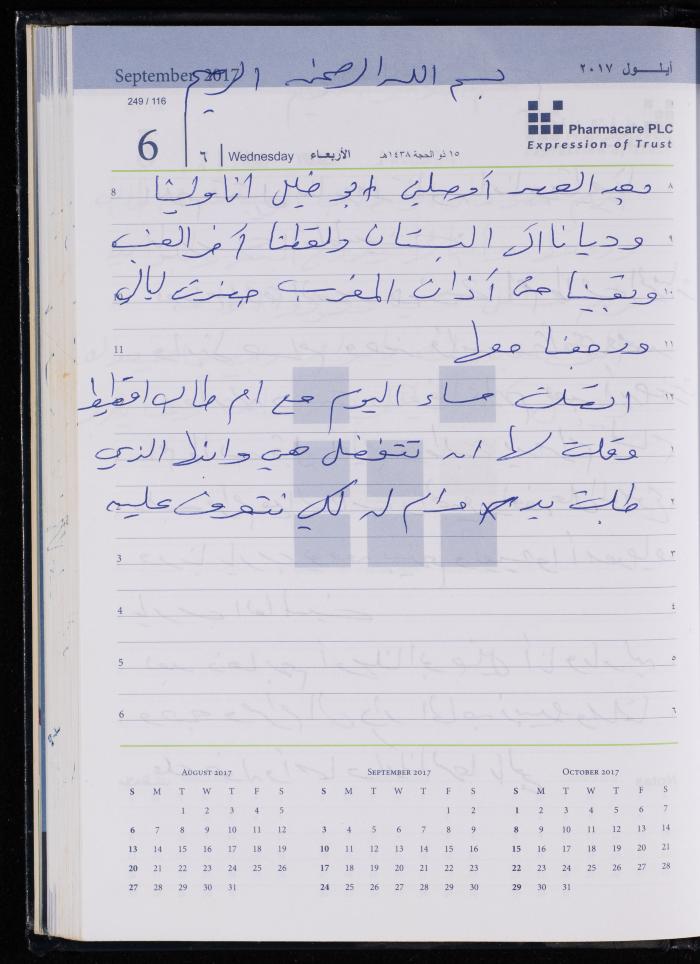 September 2017
أيلـــول ٢٠١٧
بسم الله الرحمن الرحيم
249 / 116
6
٦
Wednesday
الأربعـاء
١٥ ذو الحجة ١٤٣٨هـ
Pharmacare PLC
Expression of Trust
8 بعد العصر أوصلني ابو خليل انا و ٨
وديانا الى البستان ولقطنا آخر العنب ٩
وبقينا حتى أذان المغرب ١٠
11 ورجعنا ١١
اتصلت مساء اليوم مع ام طالب ١٢
وقلت لها ان تتفضل هي وابنها الذي ١
طلب يد مرام له لكي نتعرف عليه ٢
3 ٣
4 ٤
5 ٥
6 ٦
August 2017
S M T W T F S
1 2 3 4 5
6 7 8 9 10 11 12
13 14 15 16 17 18 19
20 21 22 23 24 25 26
27 28 29 30 31
September 2017
S M T W T F S
1 2
3 4 5 6 7 8 9
10 11 12 13 14 15 16
17 18 19 20 21 22 23
24 25 26 27 28 29 30
October 2017
S M T W T F S
1 2 3 4 5 6 7
8 9 10 11 12 13 14
15 16 17 18 19 20 21
22 23 24 25 26 27 28
29 30 31